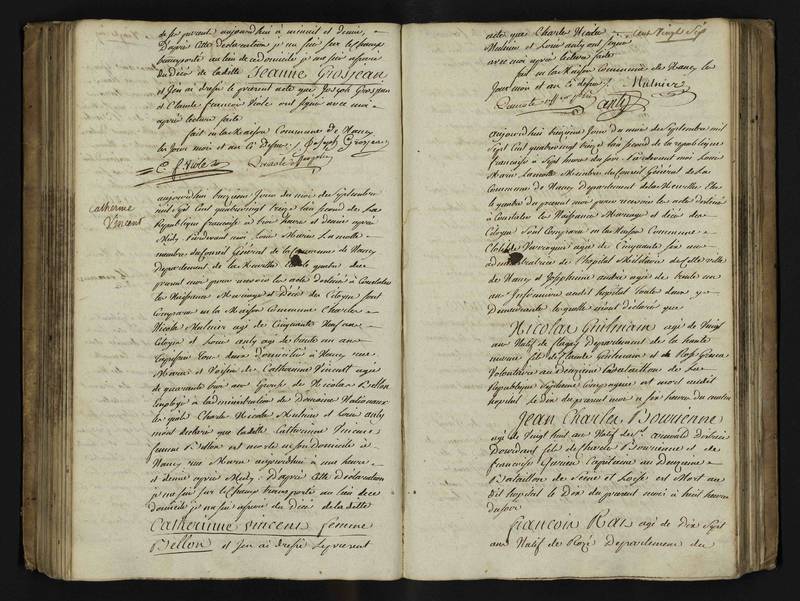 de se presant aujourdhui à nieuil et demie,
D'après cette declaration je me suis sur le champ
transporté au lieu de ce domicile je me suis assuré
du décès de ladite Jeanne Grosjean
et j'en ai dressé le present acte que Joseph Grosjean
et Claude francois Viole ont signé avec moi
après lecture faite
fait en la Maison Commune de Nancy
les jour mois et an Ci dessus. Joseph Grosjean
C. f. Viole
Catherine
Vincent
aujourdhui onzieme jour du mois de Septembre
mil Sept Cent quatrevingt treize l'an second de La
Republique francaise à trois heures et demie après
Midy Pardevant moi Louis Marie Lamotte
membre du Conseil Général de la Commune de Nancy
Departement de la Meurthe elu le quatre du
present mois pour recevoir les actes destinés à Constater
les Naissance Mariage et Décès des Citoyens sont
Comparus en la Maison Commune Charles
Nicole Mulnier agé de Cinquante Neuf ans
Citoyen et Louis anly agé de trente un ans
tous deux domiciliés à Nancy rue
et Voisins de Catherine Vincent agée
de quarante trois ans Epouse de Nicolas Bellon
Employé à l'administration des Domaines Nationaux
lesquels Charles Nicole Mulnier et Louis anly
mont déclaré que ladite Catherine Vincent
femme Bellon est morte en son Domicile à
Nancy rue aujourdhui à une heure
et demie après Midy. D'après cette declaration
je me suis sur le Champ transporté au lieu de ce
domicile je me suis assuré du décès de la ditte
Catherinne Vincent femme
Bellon et j'en ai dressé le present
acte que Charles Nicole Cent Vingt Six
Mulnier et Louis anly ont signé
avec moi après lecture faite
fait en la Maison Commune de Nancy les
jour mois et an Ci dessus. Mulnier
anly
aujourdhui onzieme jour du mois de Septembre mil
Sept Cent quatrevingt treize l'an second de la republique
francaise à Sept heures du soir. Pardevant moi Louis
Marie Lamotte Membre du Conseil Général de La
Commune de Nancy Departement de la Meurthe Elu
le quatre du present mois pour recevoir les actes destinés
à Constater les Naissance Mariage et décès des
Citoyens sont Comparus en la Maison Commune
agé de Cinquante six ans
de l'hopital Militaire de cette ville
de Nancy et Josephe andré agé de trente un
ans Infirmier audit hopital tous deux y
demeurants lesquels mont déclaré que
Nicolas Guilmain agé de Vingt
ans Natif de Departement de la haute
marne fils de Claude Guilmain et de
Volontaire au onzieme Bataillon de La
Republique est mort audit
hopital Le Dix du present mois à six heures du matin
Jean Charles Bourienne
agé de Vingt huit ans Natif de St. arnould District
Dourdant fils de Charles Bourienne et de
francoise Capitaine au onzieme
Bataillon de Seine et Loise est Mort au
dit hopital le Dix du present mois à huit heures
du soir
francois Rat agé de Dix Sept
ans Natif de Rozé Departement du